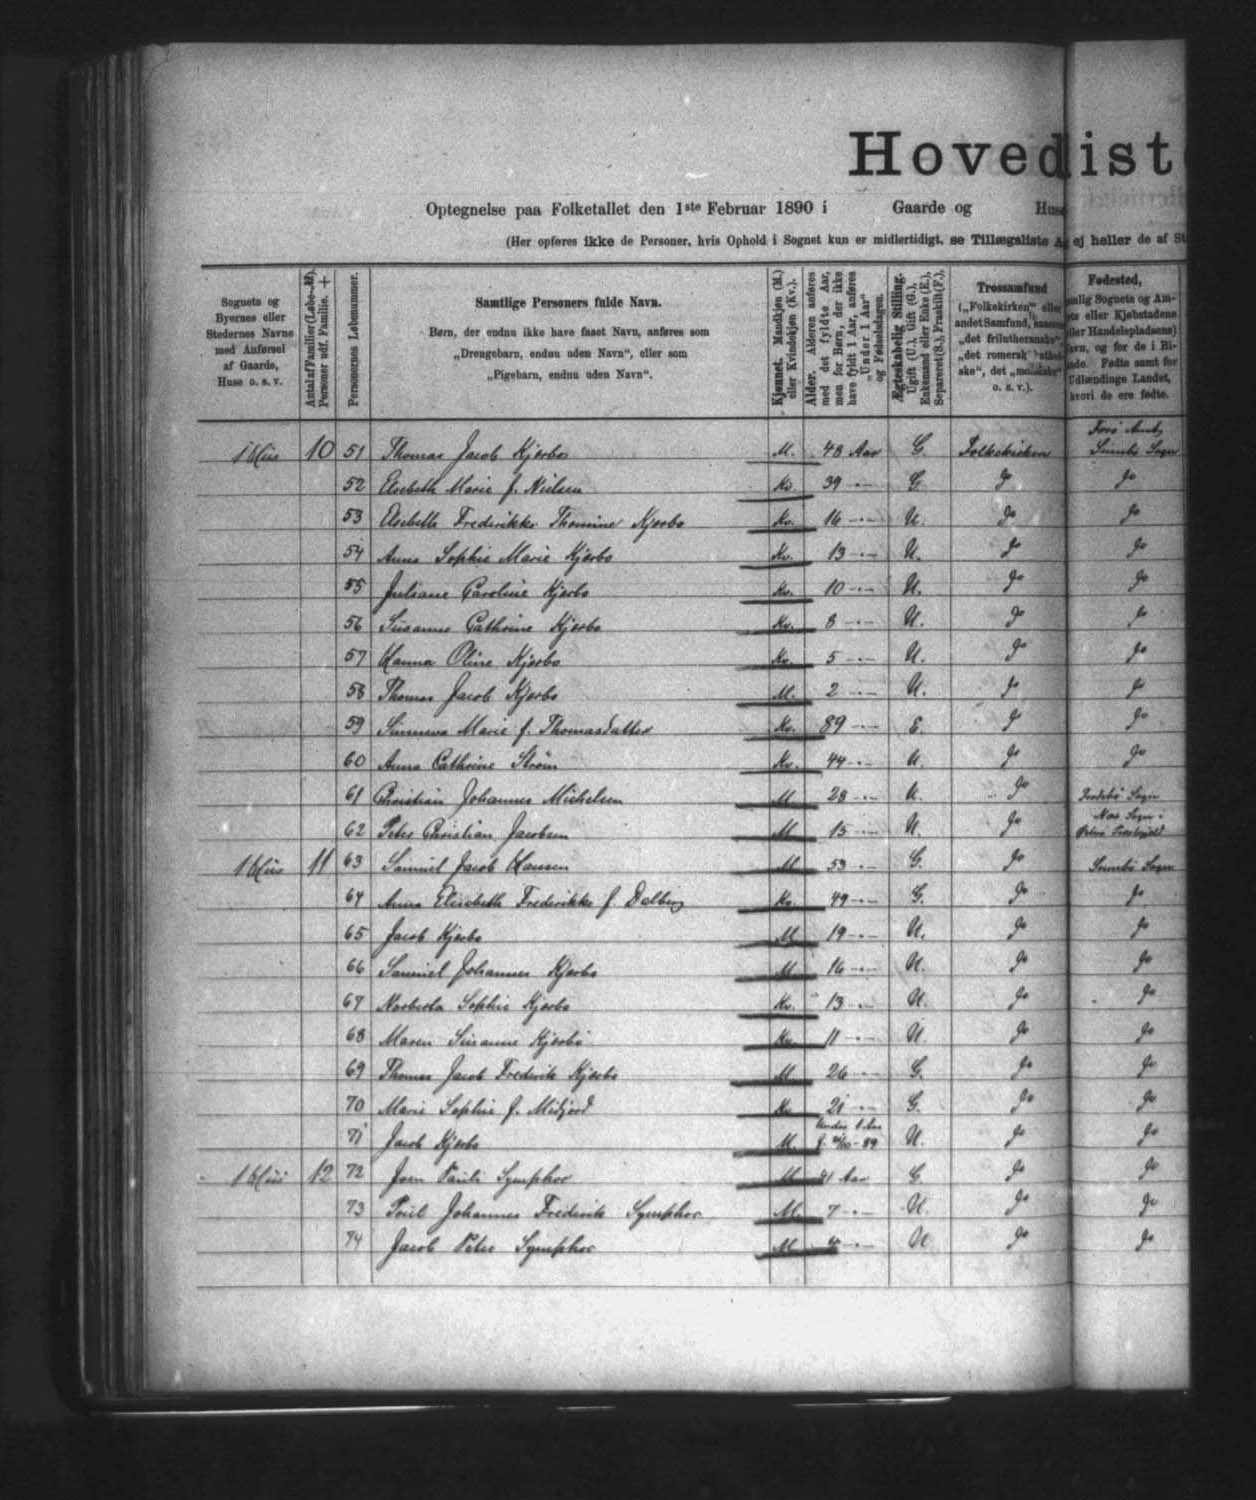 Hovedliste
Optegnelse paa Folketallet den 1ste Februar 1890 i Gaarde og Huse
(Her opføres ikke de Personer, hvis Ophold i Sognet kun er midlertidigt, se Tillægsliste A, ej heller de af St
Sognets og
Byernes eller
Stedernes Navne
med Anførsel
af Gaarde,
Huse o. s. v.
Antal af Familier (Løbe-Nr.).
Personer udf. Familie. +
Personernes Løbenummer.
Samtlige Personers fulde Navn.
Børn, der endnu ikke have faaet Navn, anføres som
„Drengebarn, endnu uden Navn", eller som
„Pigebarn, endnu uden Navn".
Kjønnet. Mandkjøn (M.)
eller Kvindekjøn (Kv.).
Alder. Alderen anføres
med det fyldte Aar,
men for Børn, der ikke
have fyldt 1 Aar, anføres
„Under 1 Aar"
og Fødselsdagen.
Ægteskabelig Stilling.
Ugift (U.), Gift (G.),
Enkemand eller Enke (E.),
Separeret (S.), Fraskilt (F.).
Trossamfund
(„Folkekirken" eller
andet Samfund, saasom
„det frilutheranske",
„det romersk katholske", det „mosaiske"
o. s. v.).
Fødested,
nemlig Sognets og Amtets
eller Kjøbstadens
(eller Handelspladsens)
Navn, og for de i Bilande
Fødte samt for
Udlændinge Landet,
hvori de ere fødte.
Færø Amt,
1 Hus 10 51 Thomas Jacob Kjærbo M. 48 Aar G. Folkekirken Sumbø Sogn
52 Elsebeth Marie f. Nielsen Kv. 39 -"- G. Do Do
53 Elsebeth Frederikke Thomine Kjærbo Kv. 16 -"- U. Do Do
54 Anna Sophie Marie Kjærbo Kv. 13 -"- U. Do Do
55 Juliane Caroline Kjærbo Kv. 10 -"- U. Do Do
56 Susanne Cathrine Kjærbo Kv. 8 -"- U. Do Do
57 Hanna Oline Kjærbo Kv. 5 -"- U. Do Do
58 Thomas Jacob Kjærbo M. 2 -"- U. Do Do
59 Sunneva Marie f. Thomasdatter Kv. 89 -"- E. Do Do
60 Anna Cathrine Strøm Kv. 44 -"- U. Do Do
61 Christian Johannes Michelsen M. 28 -"- U. Do Frodebø Sogn
62 Peter Christian Jacobsen M. 15 -"- U. Do Næs Sogn i
1 Hus 11 63 Samuel Jacob Hansen M. 53 -"- G. Do Sumbø Sogn
64 Anna Elisabeth Frederikke f. Dalberg Kv. 49 -"- G. Do Do
65 Jacob Kjærbo M. 19 -"- U. Do Do
66 Samuel Johannes Kjærbo M. 16 -"- U. Do Do
67 Sophie Kjærbo Kv. 13 -"- U. Do Do
68 Maren Susanne Kjærbo Kv. 11 -"- U. Do Do
69 Thomas Jacob Frederik Kjærbo M. 26 -"- G. Do Do
70 Marie Sophie f. Midjord Kv. 21 -"- G. Do Do
71 Jacob Kjærbo M. Under 1 Aar U. Do Do
1 Hus 12 72 Joen Pauli Symphor M. Aar G. Do Do
73 Poul Johannes Frederik Symphor M. 7 -"- U. Do Do
74 Jacob Peter Symphor M. 4 -"- U Do Do